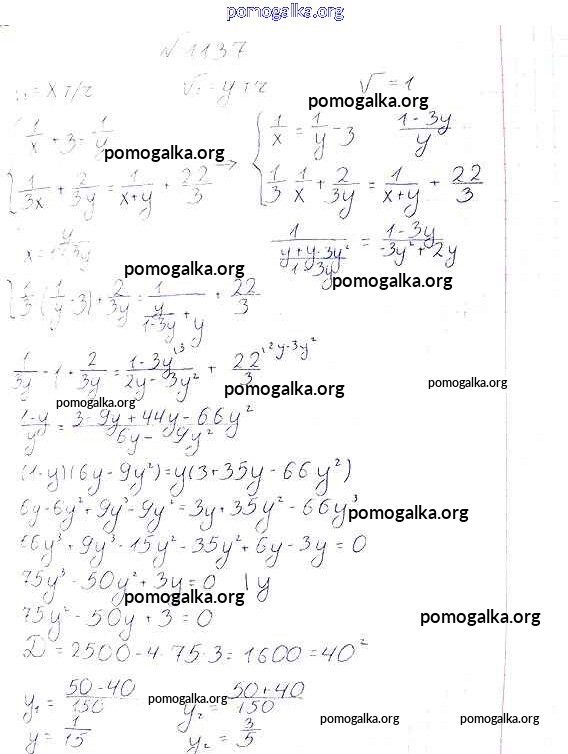 pomogalka.org
√ 1137
V₁ = x т/ч V₂ = y т/ч V = 1
pomogalka.org
1/x + 3 = 1/y
1/x = 1/y - 3 1-3y/y
pomogalka.org
1/3x + 2/3y = 1/x+y + 22/3 → 1/3 1/x + 2/3y = 1/x+y + 22/3
x = y/1-3y
1/(y+y-3y²/1-3y) = 1-3y/-3y²+2y
pomogalka.org
pomogalka.org
1/3 (1/y - 3) + 2/3y = 1/(y/1-3y + y) + 22/3
1/3y - 1 + 2/3y = 1-3y/2y-3y² + 22/3
pomogalka.org
pomogalka.org
pomogalka.org
1-y/y = 3-9y+44y-66y²/6y-9y²
(1-y)(6y-9y²)=y(3+35y-66y²)
6y-6y²+9y³-9y²=3y+35y²-66y³
pomogalka.org
66y³+9y³-15y²-35y²+6y-3y=0
75y³-50y²+3y=0 |y
pomogalka.org
75y²-50y+3=0
pomogalka.org
D=2500-4·75·3=1600=40²
y₁=50-40/150 y₂=50+40/150
pomogalka.org
y=1/15 y₂=3/5
pomogalka.org
pomogalka.org